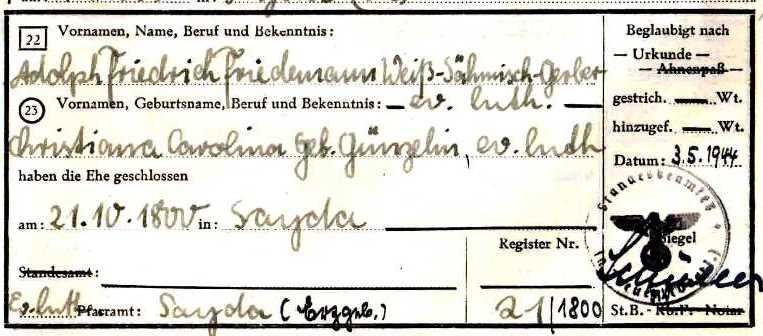 22 Vornamen, Name, Beruf und Bekenntnis:
Adolph Friedrich Friedemann Weiß-Sähmisch-Gerber
23 Vornamen, Geburtsname, Beruf und Bekenntnis: — ev. luth. —
Christiana Carolina geb. Günzelin, ev. luth
haben die Ehe geschlossen
am: 21.10.1800 in: Sayda
Standesamt:
Register Nr.
Ev.luth. Pfarramt: Sayda (Erzgeb.) 21/1800
Beglaubigt nach
— Urkunde —
— Ahnenpaß —
gestrich. — Wt.
hinzugef. — Wt.
Datum: 3.5.1944
Standesbeamter
Siegel
St.B. - Kb.F. - Notar